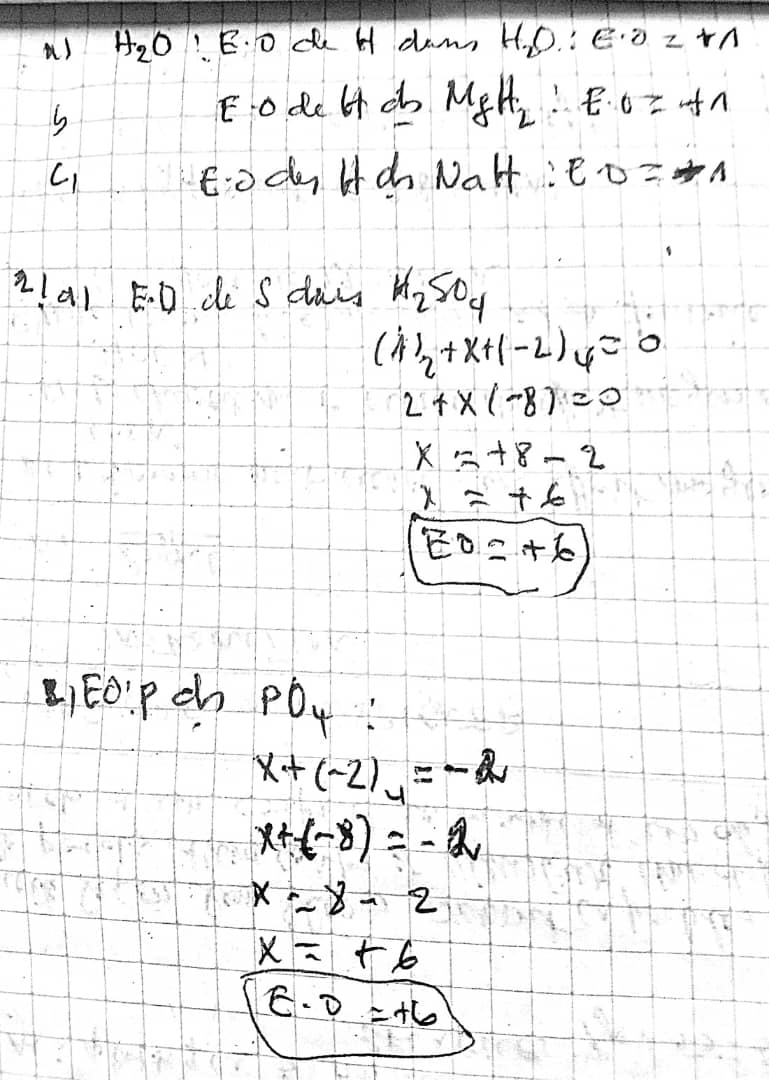 a) H₂O : E.O de H dans H₂O : E.O = +1
b E.O de H ds MgH₂ : E.O = +1
C, E.O de H ds NaH : E O = +1
2/a) E.O de S dans H₂SO₄
(1)₂ + X + (-2)₄ = 0
2 + X (-8) = 0
X = +8 - 2
X = +6
EO = +6
B, EO : P ds PO₄ :
X + (-2)₄ = -2
X + (-8) = -2
X = 8 - 2
X = +6
E.O = +6